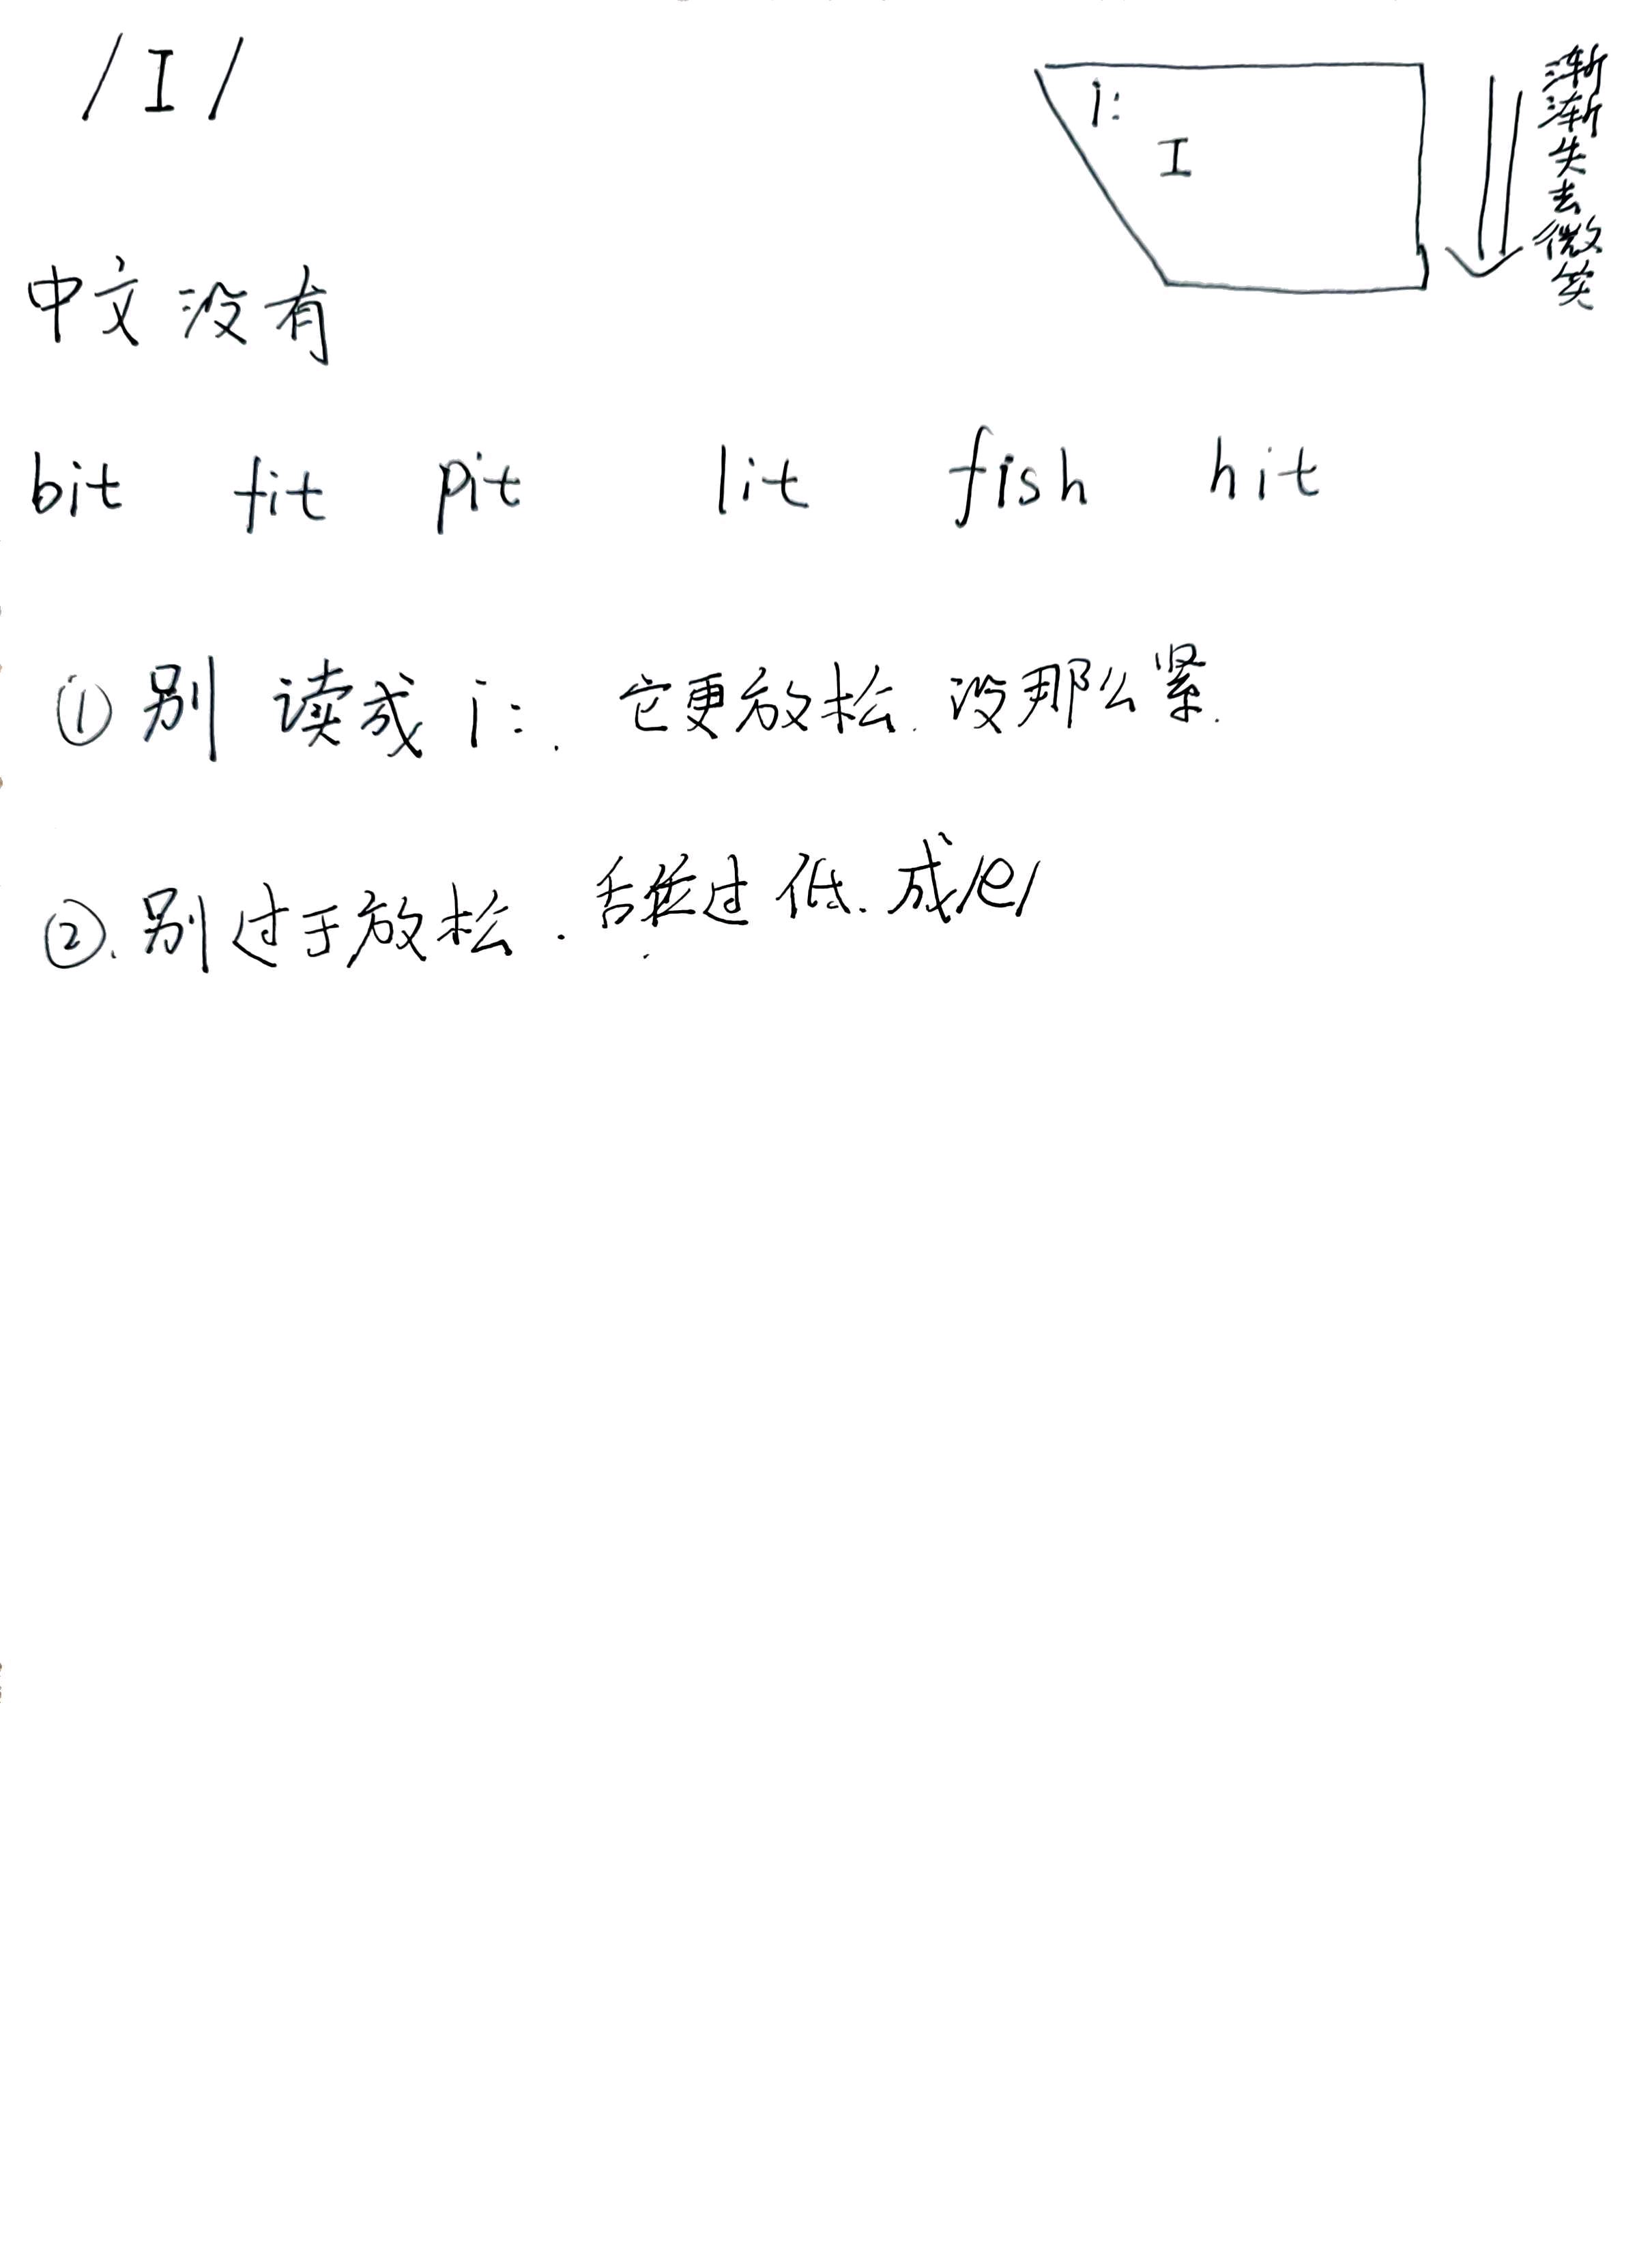 /I/
i:
I
渐渐失去微笑
中文没有
bit fit pit lit fish hit
① 别读成 i:. 它更放松. 没那么紧.
②. 别过于放松. 舌位过低. 成/e/